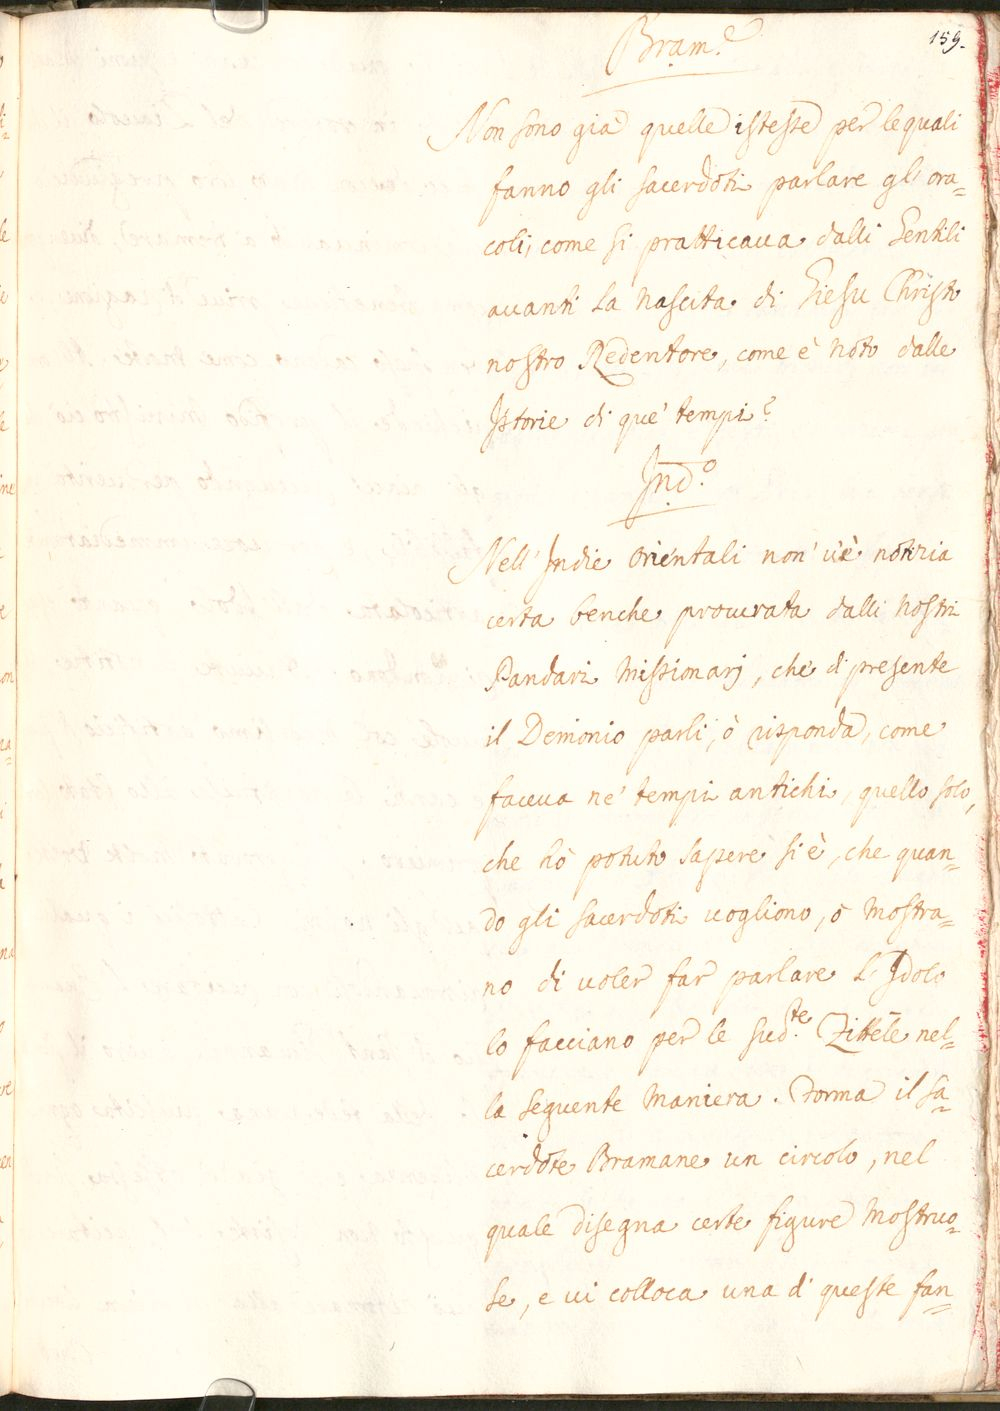 159.
Bram.e
Non sono già quelle isteste per le quali
fanno gli sacerdoti parlare gl' ora=
coli, come si pratticaua dalli Gentili
auanti la nascita di Giesu Christo
nostro Redentore, come è noto dalle
Istorie di que' tempi?
Ind.o
Nell' Indie orientali non u'è notizia
certa benche procurata dalli nostri
Pandari Missionarj, che di presente
il Demonio parli, ò risponda, come
faceua ne' tempi antichi, quello solo,
che hò potuto sapere si è, che quan=
do gli sacerdoti uogliono, ò mostra=
no di uoler far parlare l' Idolo
lo facciano per le sud.te Zittele nel=
la seguente maniera. Forma il sa=
cerdote Bramane un circolo, nel
quale disegna certe figure mostruo=
se, e ui colloca una di queste fan=